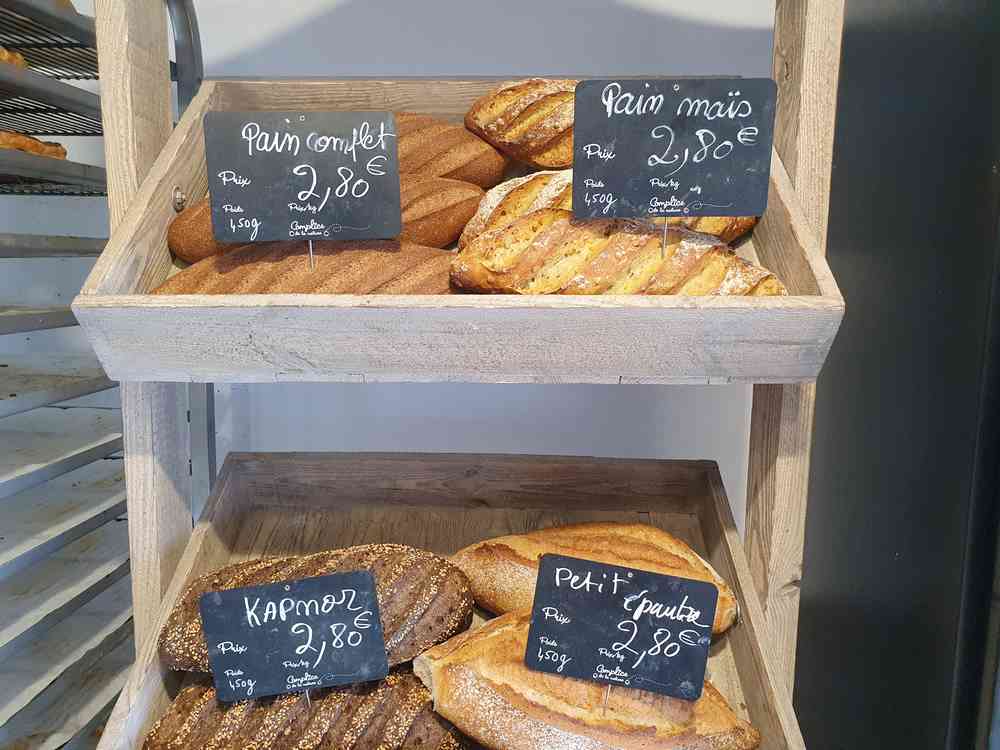 Pain complet
Prix
2,80€
Poids
Prix/kg
450g
Complice
de la nature
Pain maïs
Prix
2,80€
Poids
Prix/kg
450g
Complice
de la nature
KAPNOR
Prix
2,80€
Poids
Prix/kg
450g
Complice
de la nature
Petit
épautre
Prix
2,80€
Poids
Prix/kg
450g
Complice
de la nature